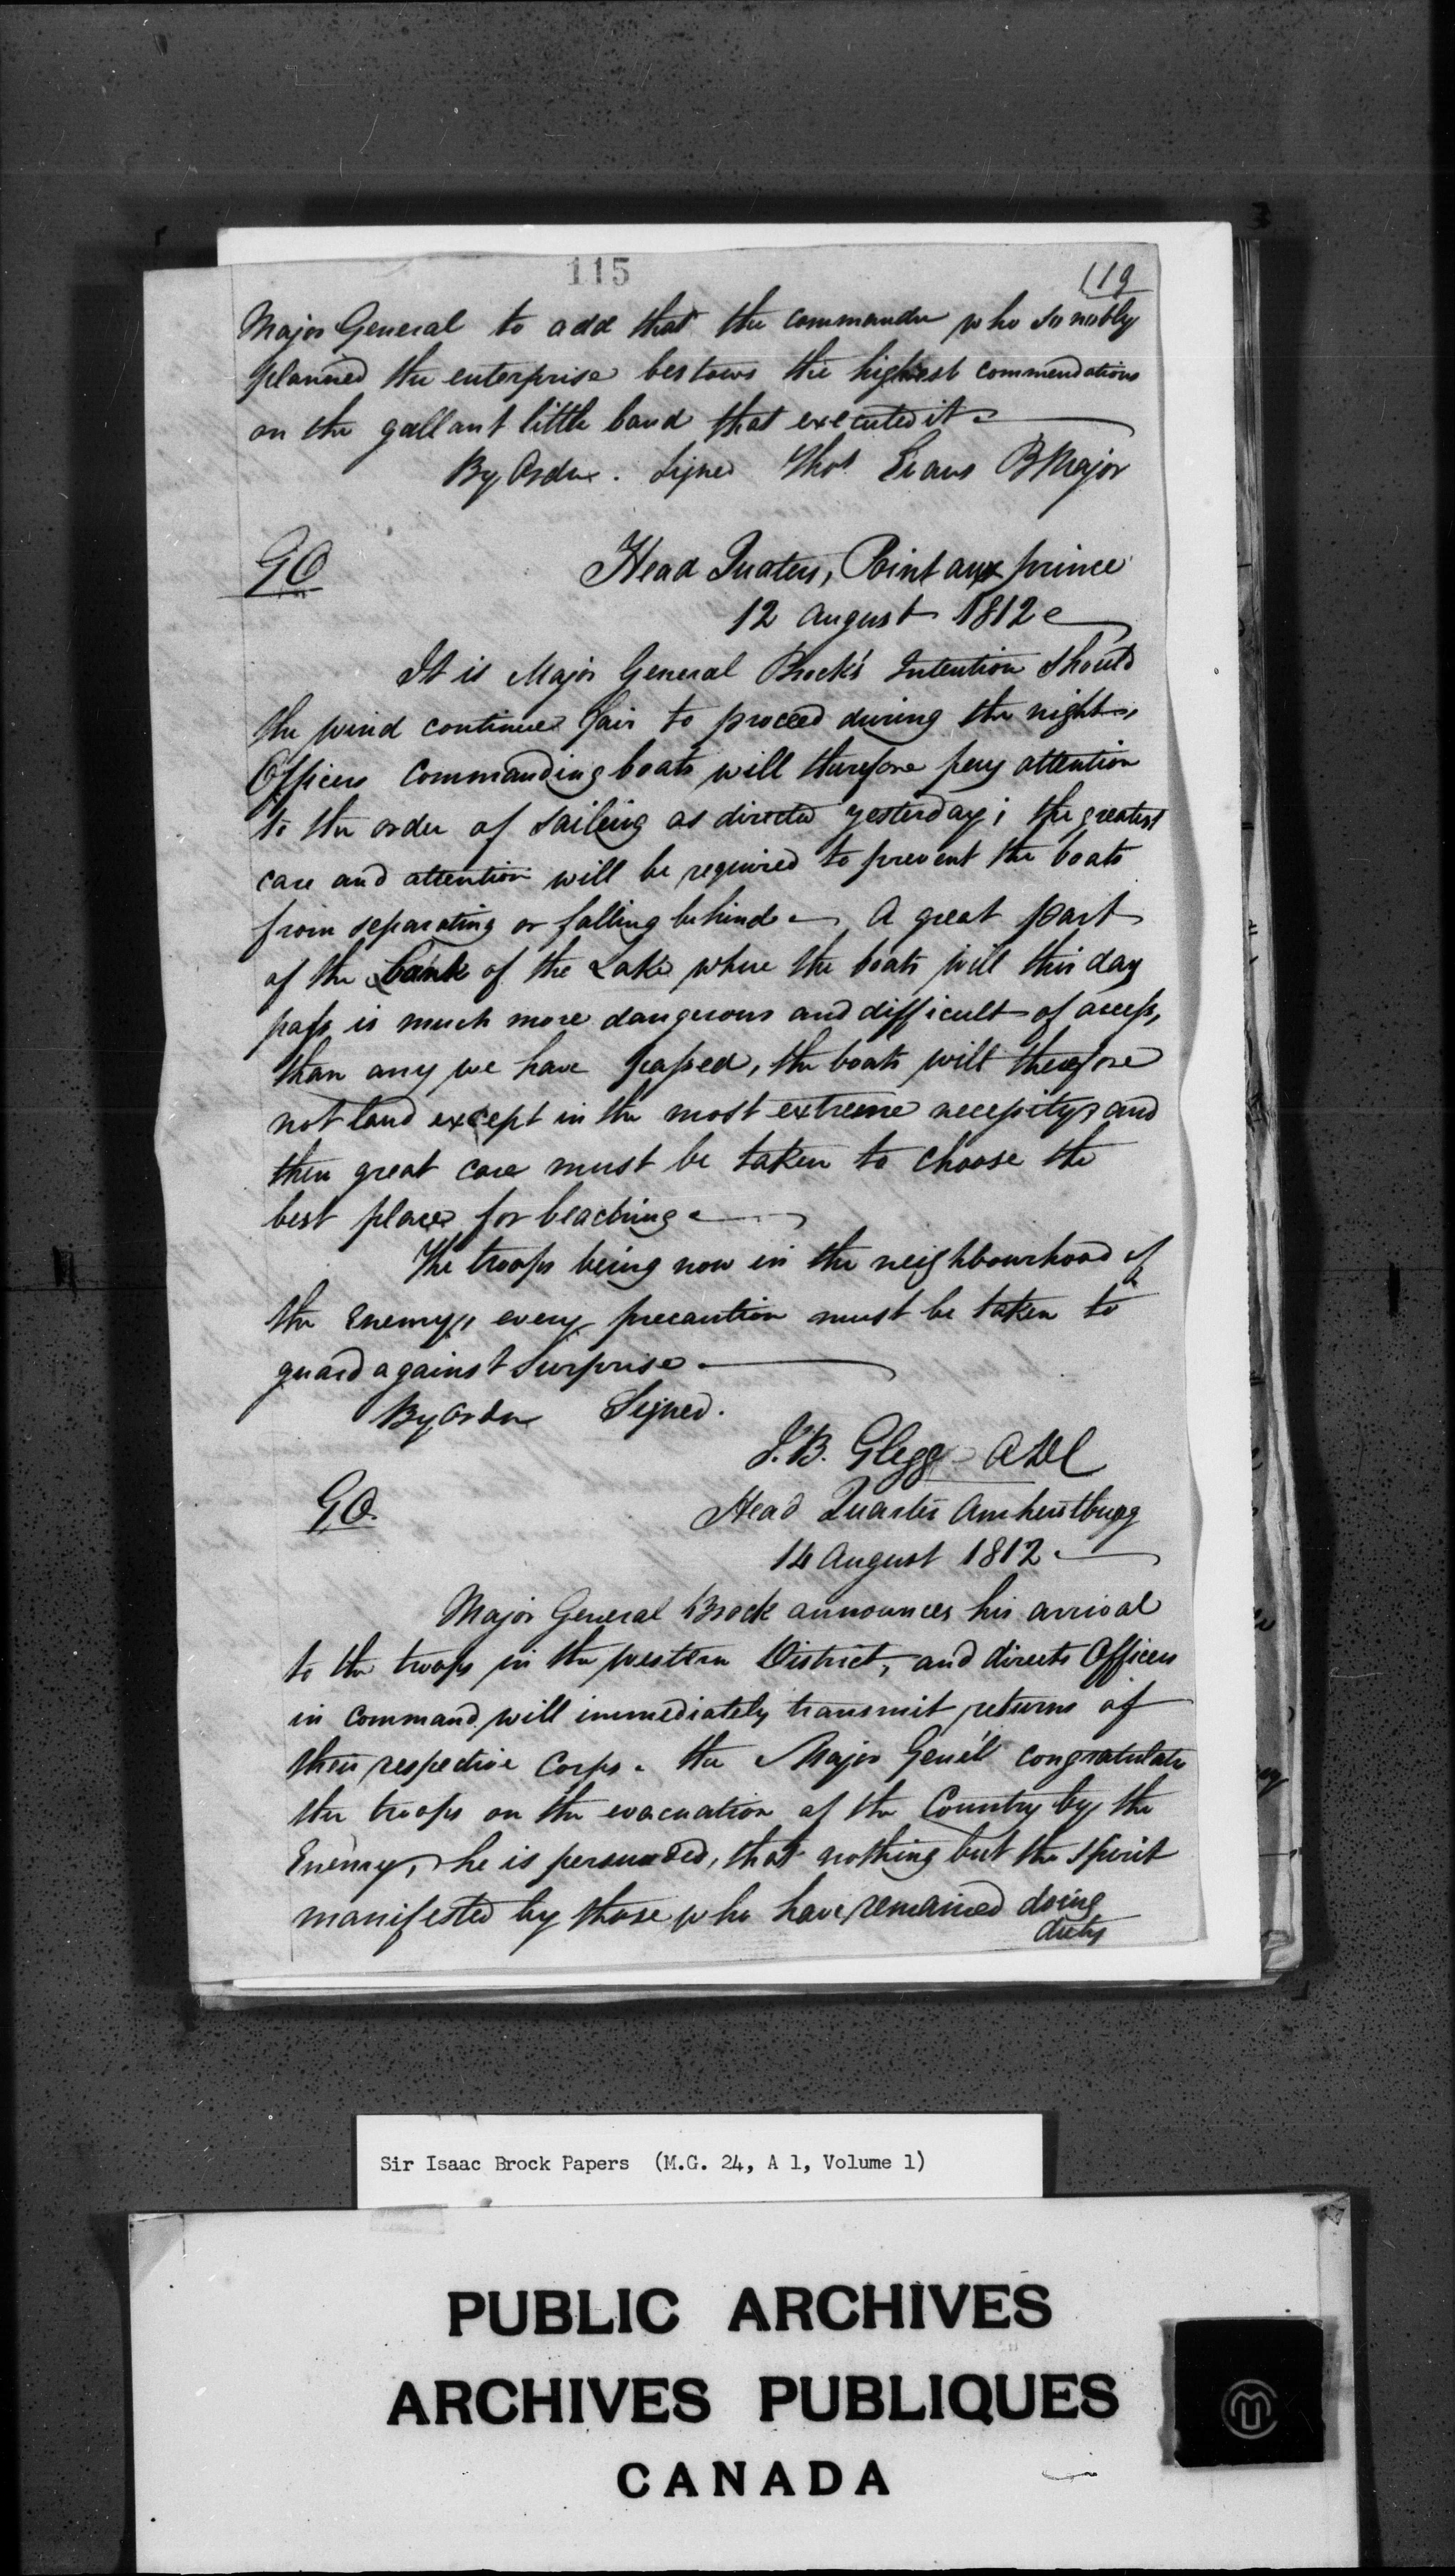 115
119
Major General to add that the commander who so nobly
planned the enterprise bestows the highest commendations
on the gallant little band that executed it
By Order. Signed Thos. Evans B Major
GO
Head Quaters, Point aux prince
12 August 1812
It is Major General Brock's Intention should
the wind continue fair to proceed during the night,
Officers Commanding boats will therefore pay attention
to the order of sailing as directed yesterday; the greatest
care and attention will be required to prevent the boats
from separating or falling behind. A great part
of the bank of the Lake where the boats will this day
pass is much more dangerous and difficult of access,
than any we have passed, the boats will therefore
not land except in the most extreme necessity, and
then great care must be taken to choose the
best places for beaching.
The troops being now in the neighbourhood of
the Enemy, every precaution must be taken to
guard against Surprise.
By order Signed.
J.B. Glegg ADC
GO.
Head Quarters Amherstburg
14 August 1812.
Major General Brock announces his arrival
to the troops in the western District, and directs Officers
in command will immediately transmit returns of
their respective Corps. the Major Gen'l congratulates
the troops on the evacuation of the Country by the
Enemy, he is persuaded, that nothing but the spirit
manifested by those who have remained doing
duty
Sir Isaac Brock Papers (M.G. 24, A 1, Volume 1)
PUBLIC ARCHIVES
ARCHIVES PUBLIQUES
CANADA